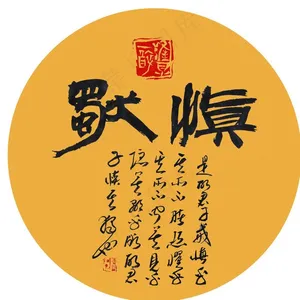 愼獨
是故君子戒慎乎
其所不睹恐懼乎
其所不聞莫見乎
隱莫顯乎微故君
子慎其獨也